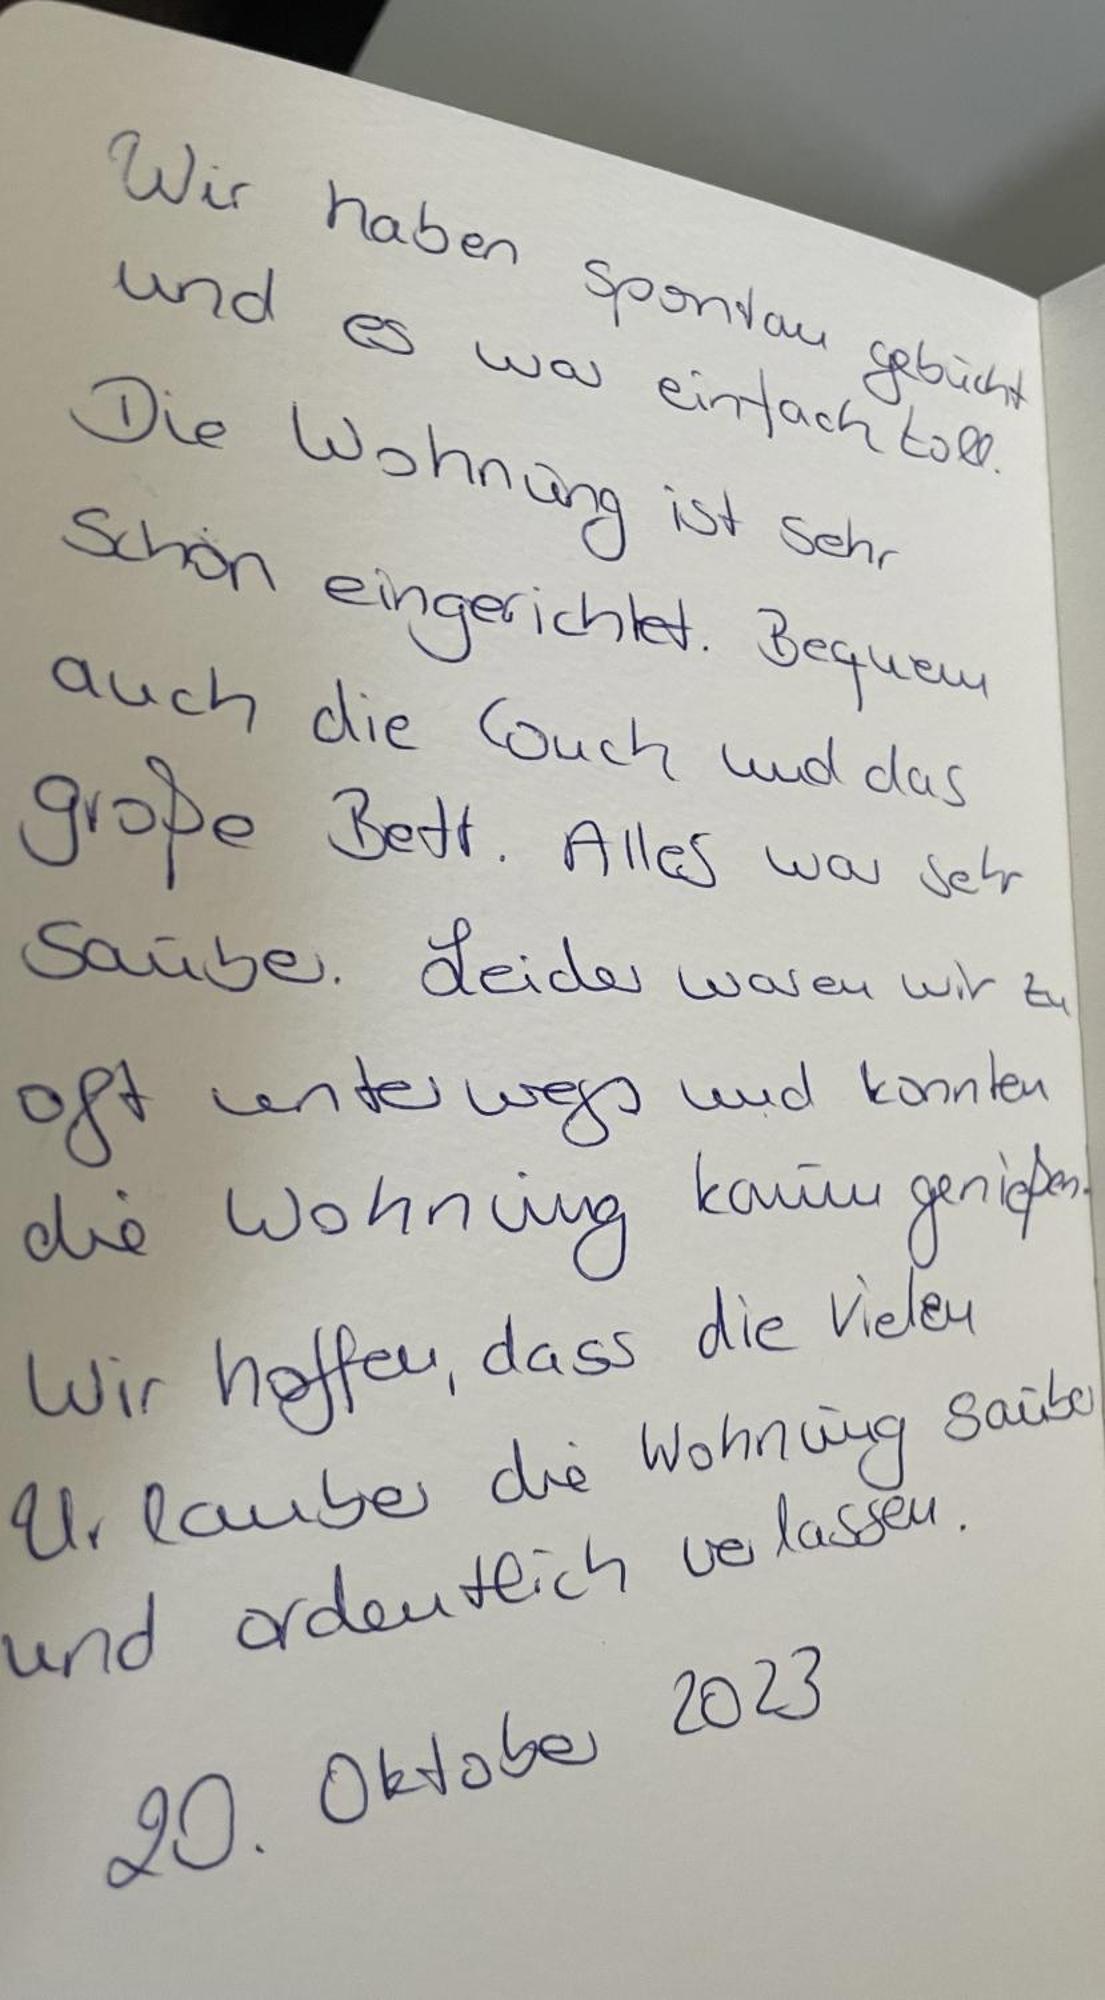 Wir haben spontan gebucht
und es war einfach toll.
Die Wohnung ist sehr
schön eingerichtet. Bequem
auch die Couch und das
große Bett. Alles war sehr
sauber. Leider waren wir zu
oft unterwegs und konnten
die Wohnung kaum genießen.
Wir hoffen, dass die vielen
Urlauber die Wohnung sauber
und ordentlich verlassen.
20. Oktober 2023